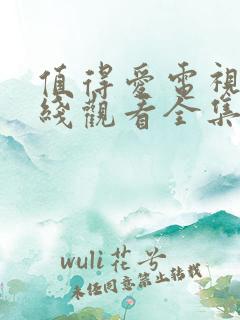 值得愛電視
綫觀看全集
wuli花兮
未经同意禁止转载